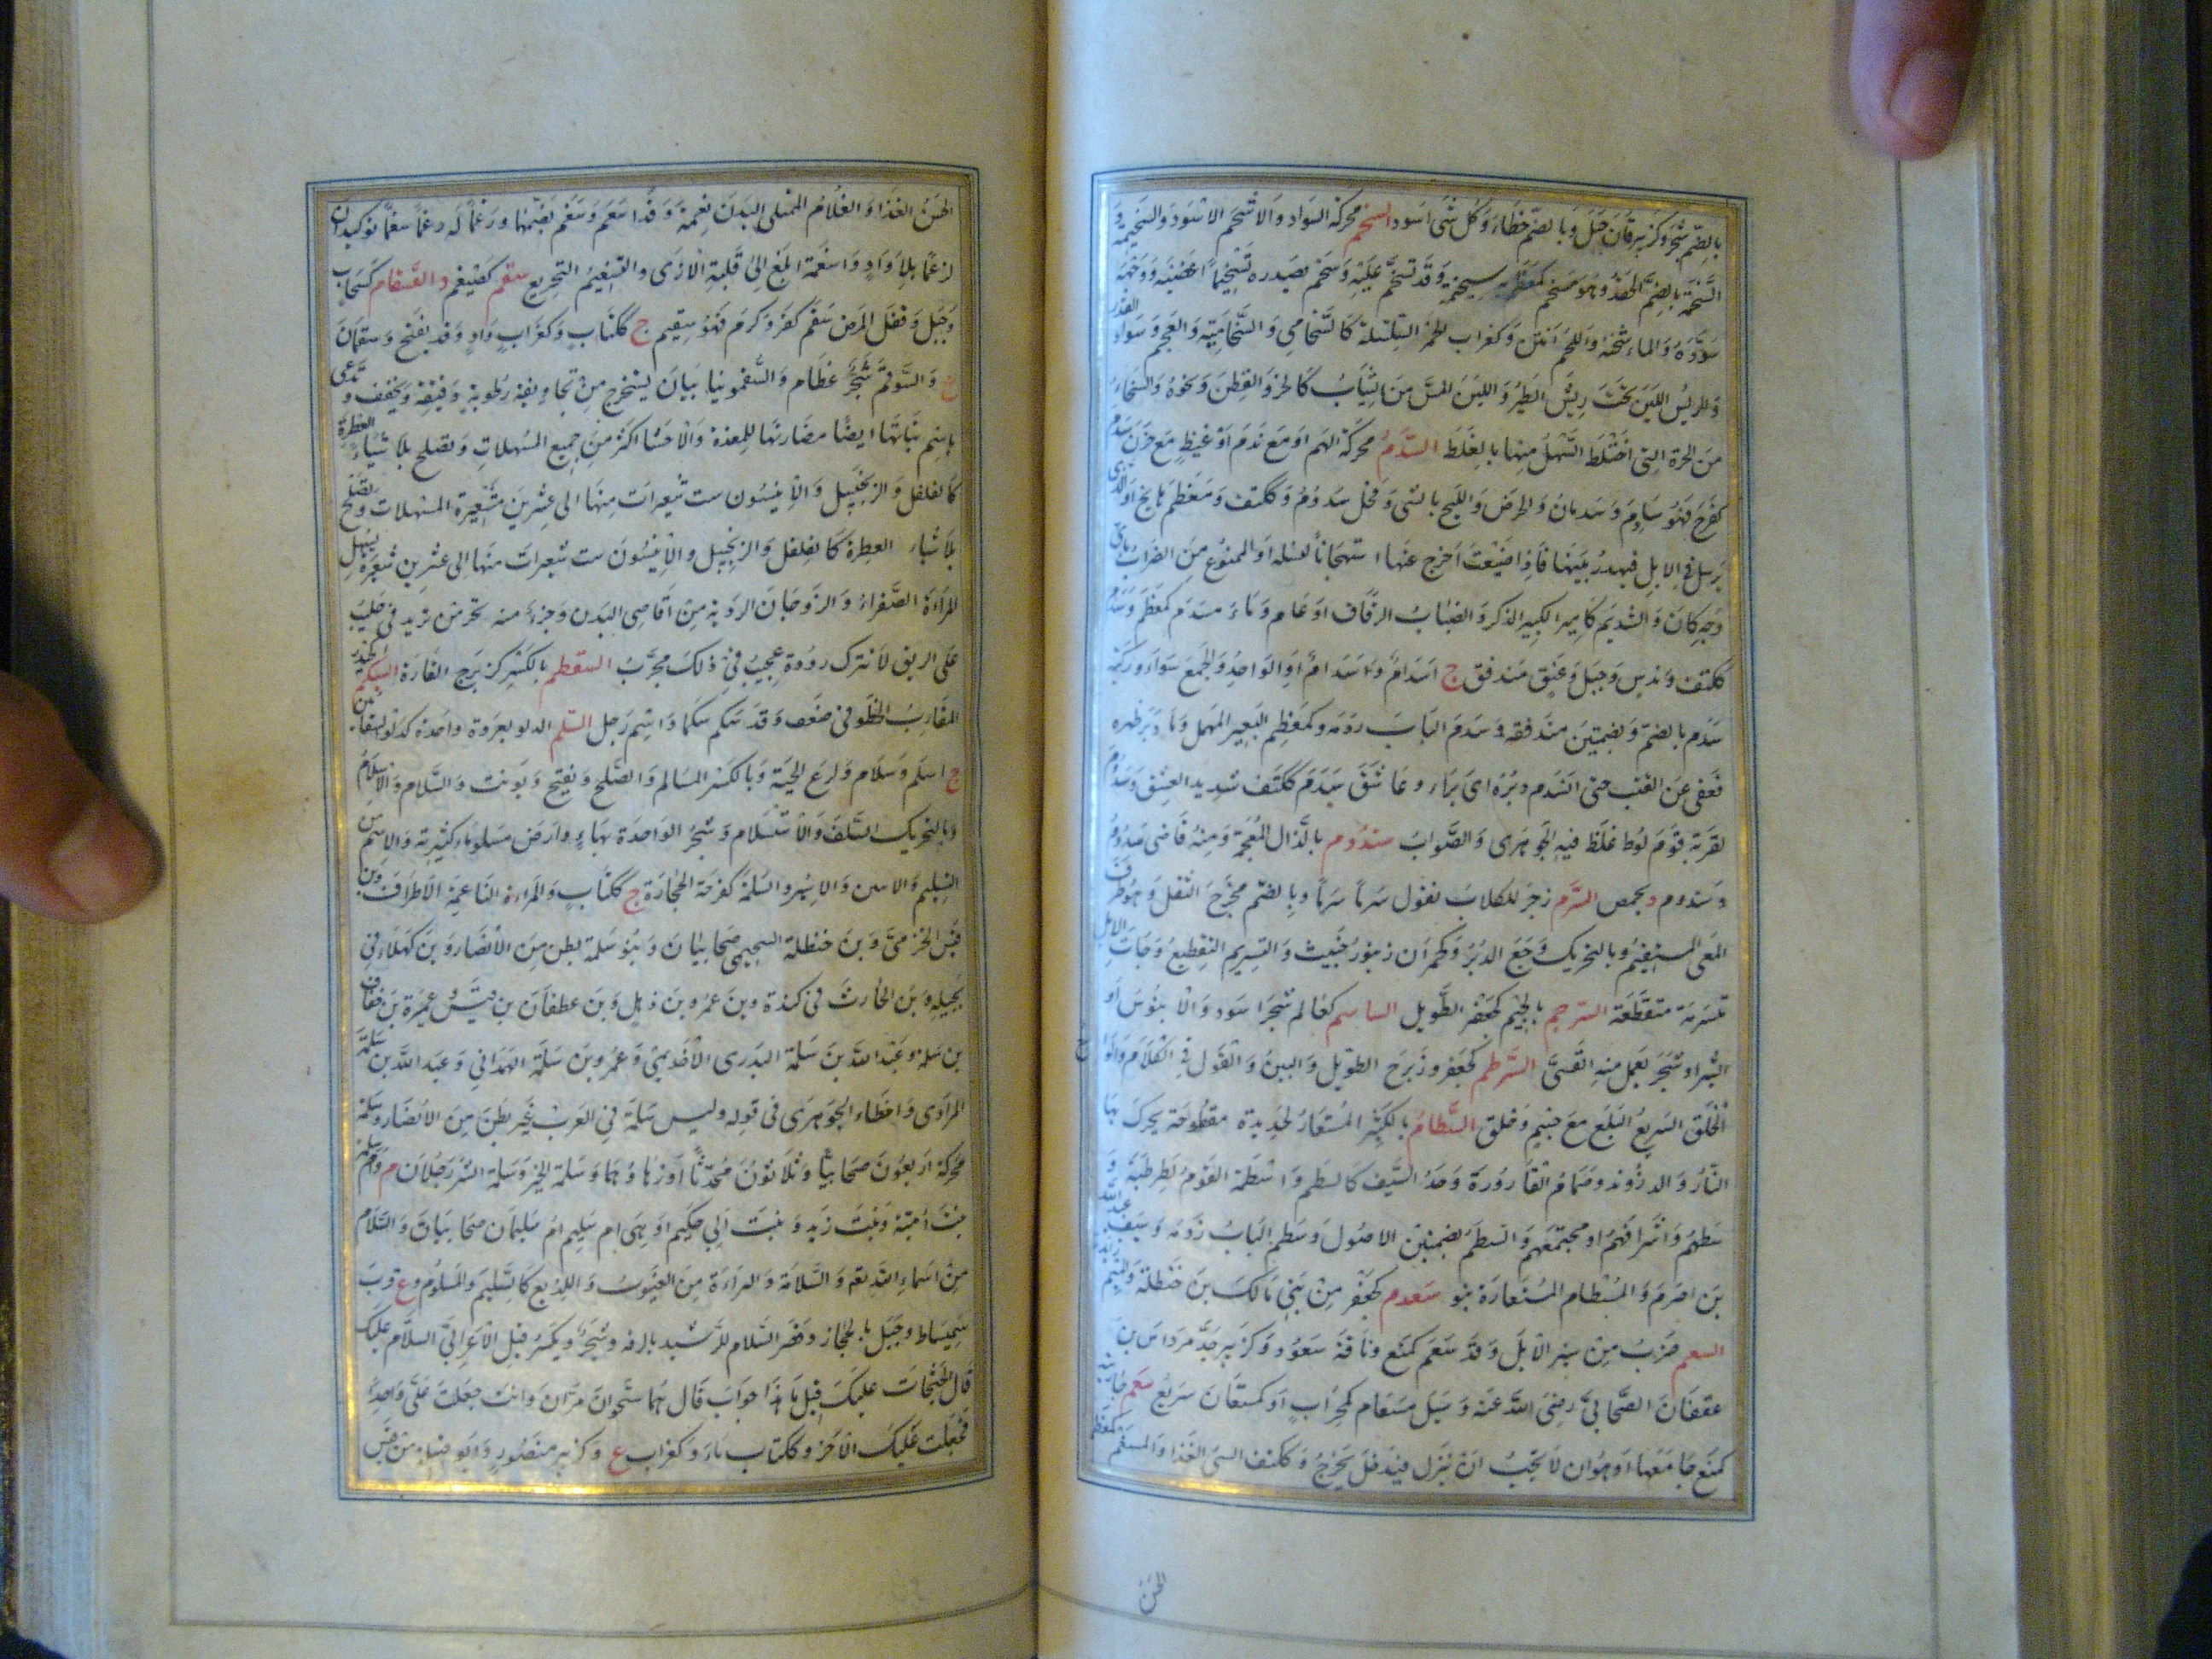 بالضم شجر وكزبرقان جبل وبالضم خطاء وكل شى اسود السخم محركة السواد والاسخم الاسود والسخيمة و
السخمة بالضم الحقد وهو مسخم كمعظم به سخيمة وقد تسخم عليه وسخم بصدره تسخيما اغضبه ووجهه
سوده والماء سخنه واللحم انتن وكغراب للخمر السلسلة كالسخامى والسخامية والفحم وسواد القدر
وللريش اللين تحت ريش الطير واللين المس من الثياب كالخز والقطن ونحوه والسخاء
من الحرة التى اختلط السهل منها بالغلظ السدم محركة الهم او مع ندم او غيظ مع حزن سدم
كفرح فهو سادم وسدمان والحرص واللهج بالشى وفحل سدوم وككتف ومعظم هايج او الذى
يرسل فى الابل فيهدر بينها فاذا ضبعت اخرج عنها استهجانا لنسله او الممنوع من الضراب باى
وجه كان والسديم كامير الكبير الذكر والضباب الرقاق او عام وماء مسدم كمعظم وسدم
ككتف وندس وجبل وعنق مندفق ج اسدام وسدام او الواحد والجمع سواء وركية
سدم بالضم وبضمتين مندفقة وسدم الباب ردمه وكمعظم البعير المهمل وما دبر ظهره
فعفى عن القتب حتى انسدم دبره اى براء وعاشق سدم ككتف شديد العشق وسدوم
لقرية قوم لوط غلط فيه الجوهرى والصواب سذوم بالذال المعجمة ومنه قاضى سدوم
وسذوم د بحمص السرم زجر للكلاب تقول سرما سرما وبالضم مخرج الثفل وهو طرف
المعى المستقيم وبالتحريك وجع الدبر وكحمران زنبور خبيث والتسريم التقطيع وجات الابل
متسرمة متقطعة السرجم بالجيم كجعفر الطويل الساسم كعالم شجر اسود والابنوس او
الشيز او شجر يعمل منه القسى السرطم كجعفر وزبرج الطويل والبين القول فى الكلام والوا
الخلق السريع البلع مع جسم وخلق السطام بالكسر المسعار لحديدة مفطوحة يحرك بها
النار والدروند وصمام القارورة وحد السيف كالسطم واسطمة القوم كطرطبة و
سطمهم واشرافهم او مجتمعهم والسطم بضمتين الاصول وسطم الباب ردمه وسيف عبد الله
بن اصرم والمسطام المستعارة بنو سعدم كجعفر من بنى مالك بن حنظلة والميم زايدة
السعم ضرب من سير الابل وقد سعم كمنع وناقة سعوم وكزبير جد مرداس بن
عقفان الصحابى رضى الله عنه وسيل مسعام كمحراب او كمستعان سريع سغم جاريته
كمنع جامعها او هو ان لا يحب ان ينزل فيدخل يخرج وككتف السئ الغذا والمسغم كمعظم
الحسن
الحسن الغذا والغلام الممتلى البدن نعمة وقد اسغم وسغم بضمهما ورغما له دغما سغما توكيدان
لرغما بلا واو واسغمه ابلغ الى قلبه الاذى والتسغيم التجريع سقم كضيغم د السقام كسحاب
وجبل وقفل المرض سقم كفرح وكرم فهو سقيم ج ككتاب وكغراب واد وقد يفتح وسقمان
ع والسوقم شجر عظام والسقمونيا نبات يستخرج من تجاويفه رطوبة دبقة ويجفف وتدعى
باسم نباتها ايضا مضارتها للمعدة والاحشا اكثر من جميع المسهلات وتصلح بالاشياء العطرة
كالفلفل والزنجبيل والانيسون ست شعيرات منها الى عشرين شعيرة المسهلات وتصلح
بالاشياء العطرة كالفلفل والزنجبيل والانيسون ست شعيرات منها الى عشرين شعيرة يسهل
المراة الصفراء واللزوجات الردية من اقاصى البدن وجزء منه بجزء من تربد فى حليب
على الريق لا تترك دودة عجيب فى ذلك مجرب السقطم بالكسر كزبرج الفارة السيكم كحيدر
المقارب الخطو فى ضعف وقد سكم سكما واسم رجل السلم الدلو بعروة واحدة كدلو السقاين
ج اسلم وسلام ولدغ الحية وبالكسر المسالم والصلح ويفتح ويونث والسلام والاسلام
وبالتحريك السلف والاستسلام وشجر الواحدة بهاء وارض مسلوماء كثيرته والاسم من
التسليم والاسر والاسير والسلمة كفرحة الحجارة ج ككتاب والمراءة الناعمة الاطراف وبن
قيس الجرمى وبن حنظلة السحيمى صحابيان وبنو سلمة بطن من الانصار وبن كهلاء فى
بجيلة وبن الحارث فى كندة وبن عمرو بن ذهل وبن غطفان بن قيس وعميرة بن خفاف
بن سلمة وعبد الله بن سلمة البدرى الاحدى وعمرو بن سلمة الهمدانى وعبد الله بن سلمة
المرادى واخطاء الجوهرى فى قوله وليس سلمة فى العرب غير بطن من الانصار وسلمة
محركة اربعون صحابيا وثلاثون محدثا او زهاوهما وسلمة الخير وسلمة الشر رجلان م وام سلمة
بنت امية وبنت زيد وبنت ابى حكيم او هى ام سليم ام سليمان صحابيات والسلام
من اسماء الله تعه والسلامة والبراءة من العيوب واللديغ كالسليم والمسلوم وع قرب
سميساط وجبل بالحجاز وقصر السلام للرشيد بالرقة وشجر ويكسر قيل لاعرابى السلام عليك
قال الجثجاث عليك قيل ما هذا جواب قال هما شجران مران وانت جعلت على واحدا
فجعلت عليك الاخر وككتاب ماء وكغراب ع وكزبير منصور وابو قبيلة من قيس